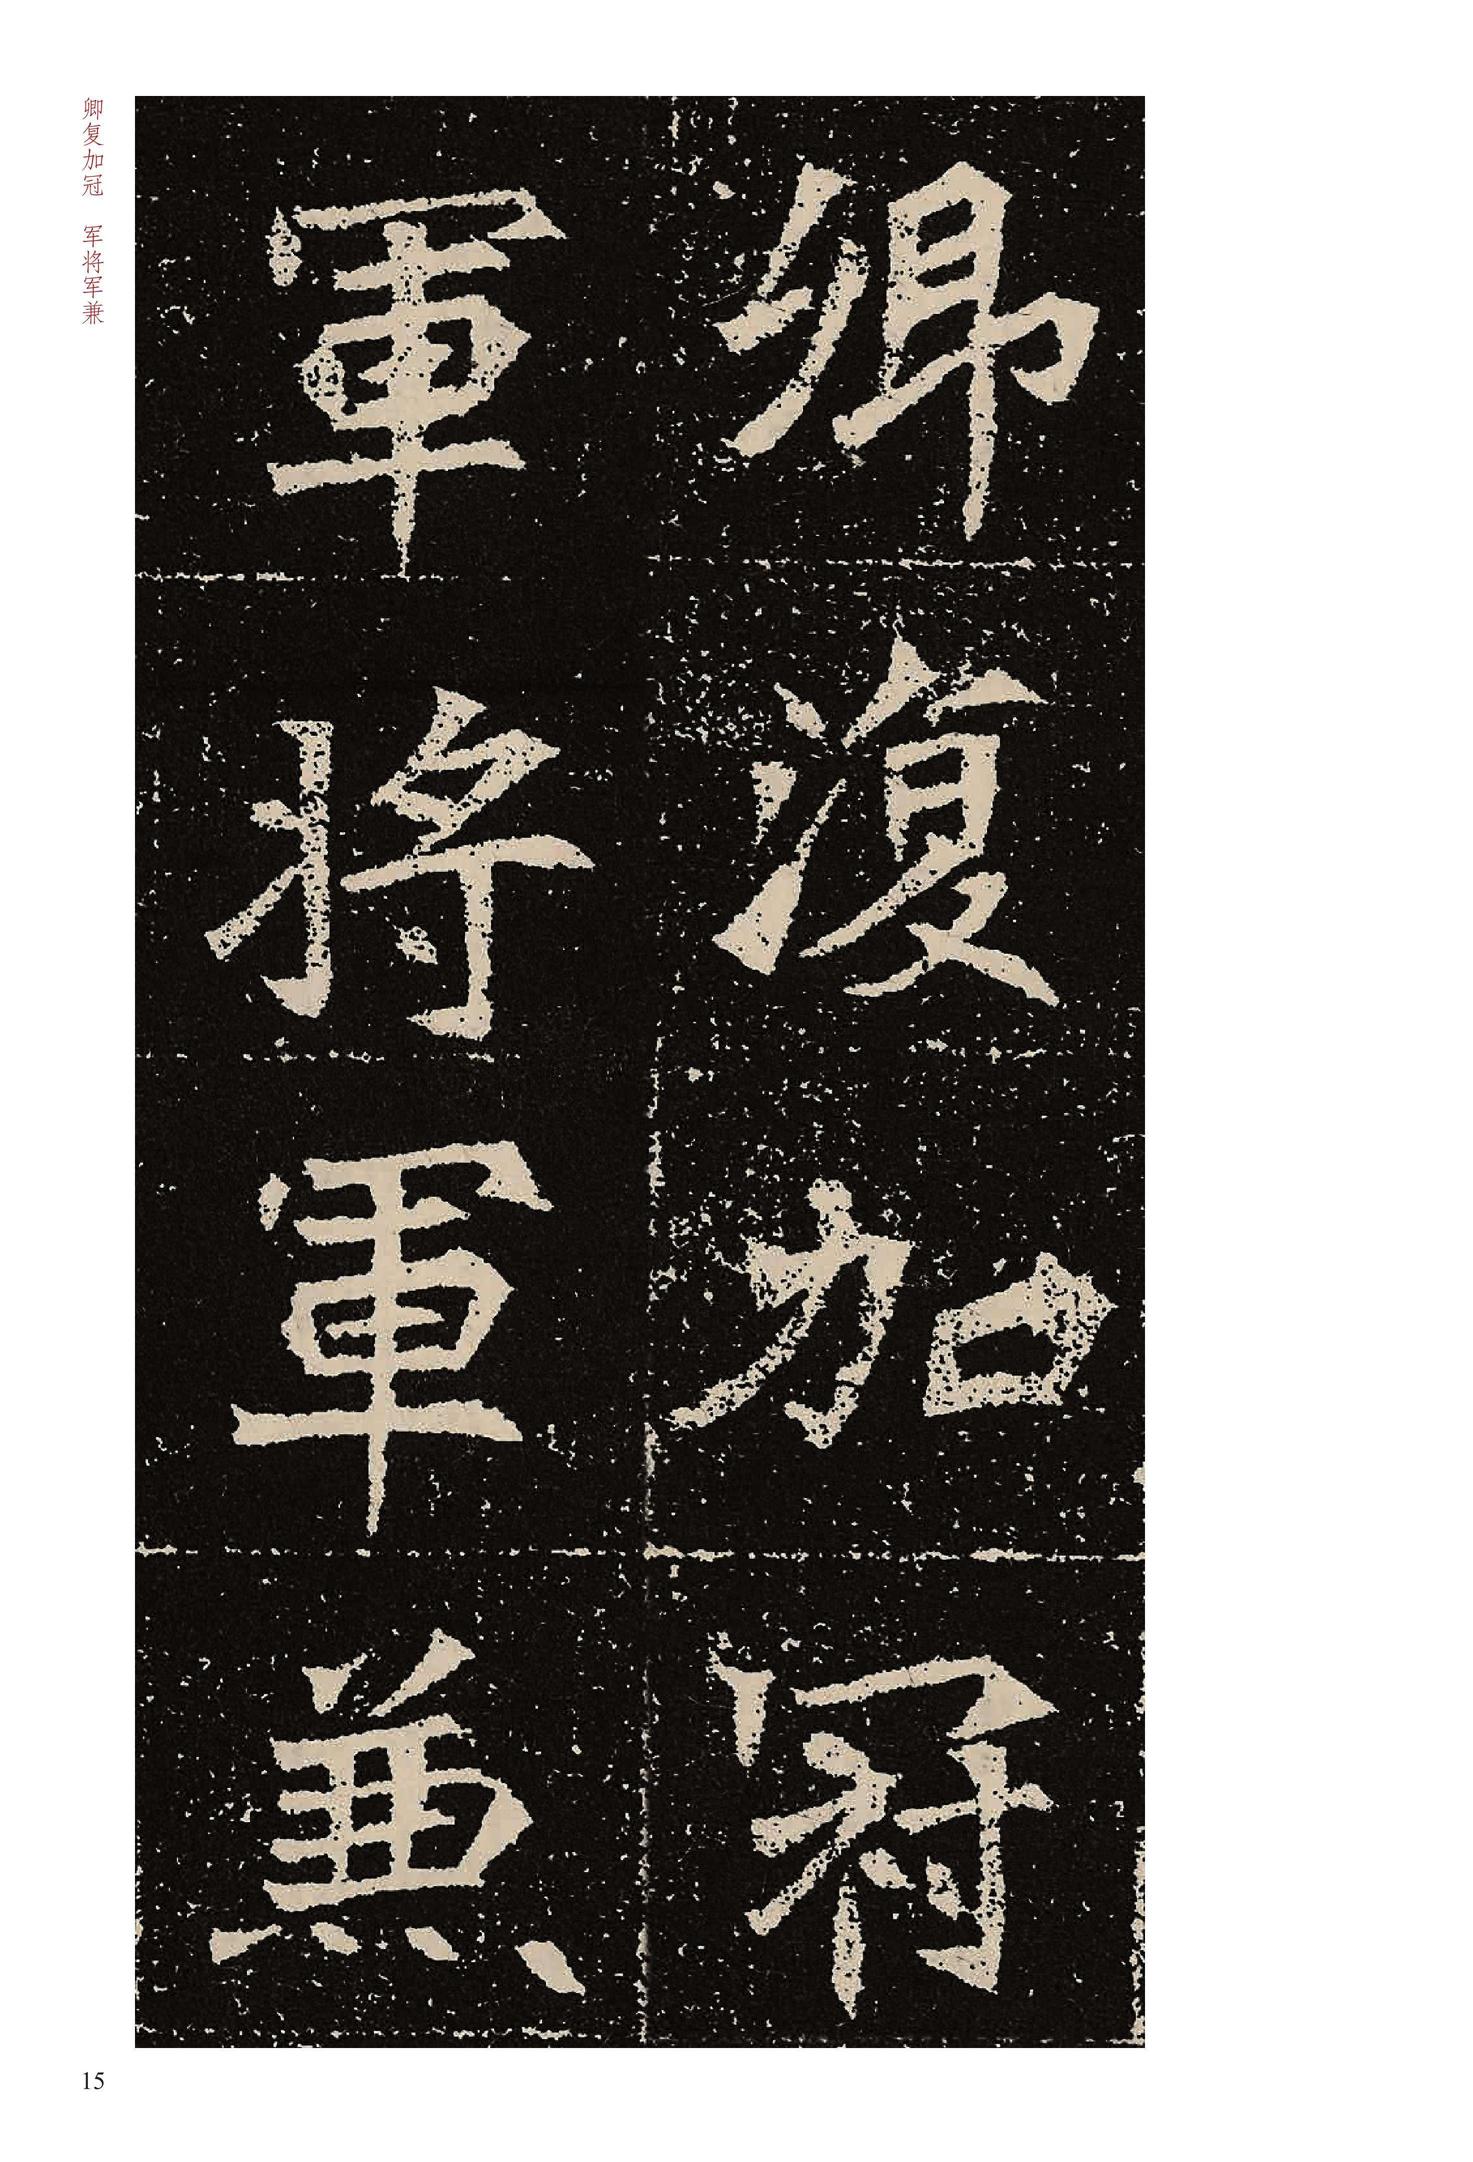 卿復加冠
軍將軍兼
卿复加冠　军将军兼
15